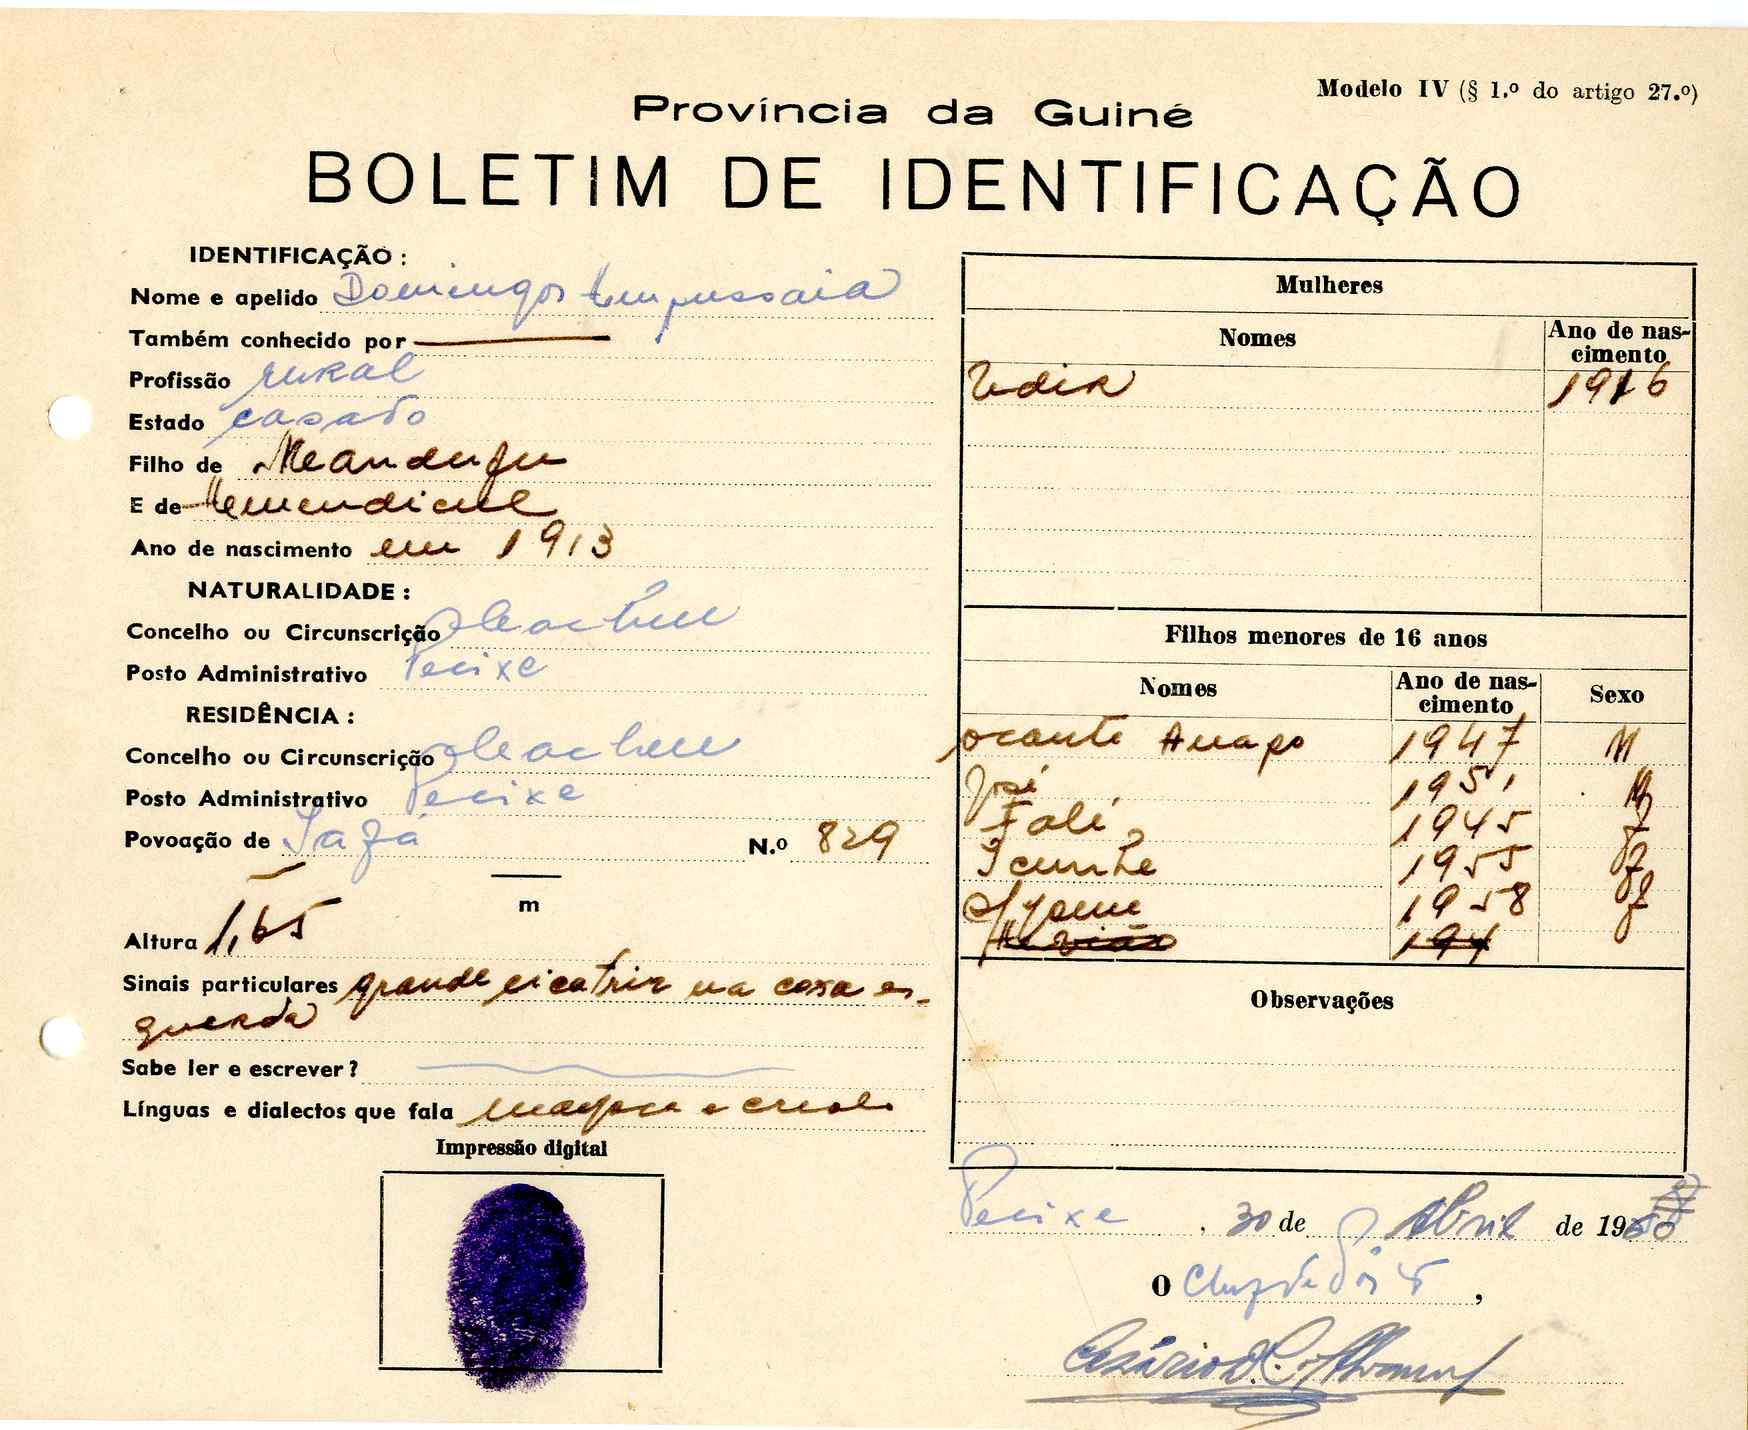 Modelo IV (§ 1.º do artigo 27.º)
Província da Guiné
BOLETIM DE IDENTIFICAÇÃO
IDENTIFICAÇÃO :
Nome e apelido Domingos
Também conhecido por
Profissão rural
Estado casado
Filho de
E de
Ano de nascimento em 1913
NATURALIDADE :
Concelho ou Circunscrição
Posto Administrativo Pecixe
RESIDÊNCIA :
Concelho ou Circunscrição
Posto Administrativo Pecixe
Povoação de N.º 829
m
Altura 1,65
Sinais particulares grande cicatriz na coxa es-
querda
Sabe ler e escrever?
Línguas e dialectos que fala
Impressão digital
Mulheres
Nomes Ano de nas-
cimento
Udir 1916
Filhos menores de 16 anos
Nomes Ano de nas-
cimento Sexo
1947 M
José 1951
Falé 1945 F
1955 F
1958 F
Observações
Pecixe, 30 de Abril de 1960
O ,